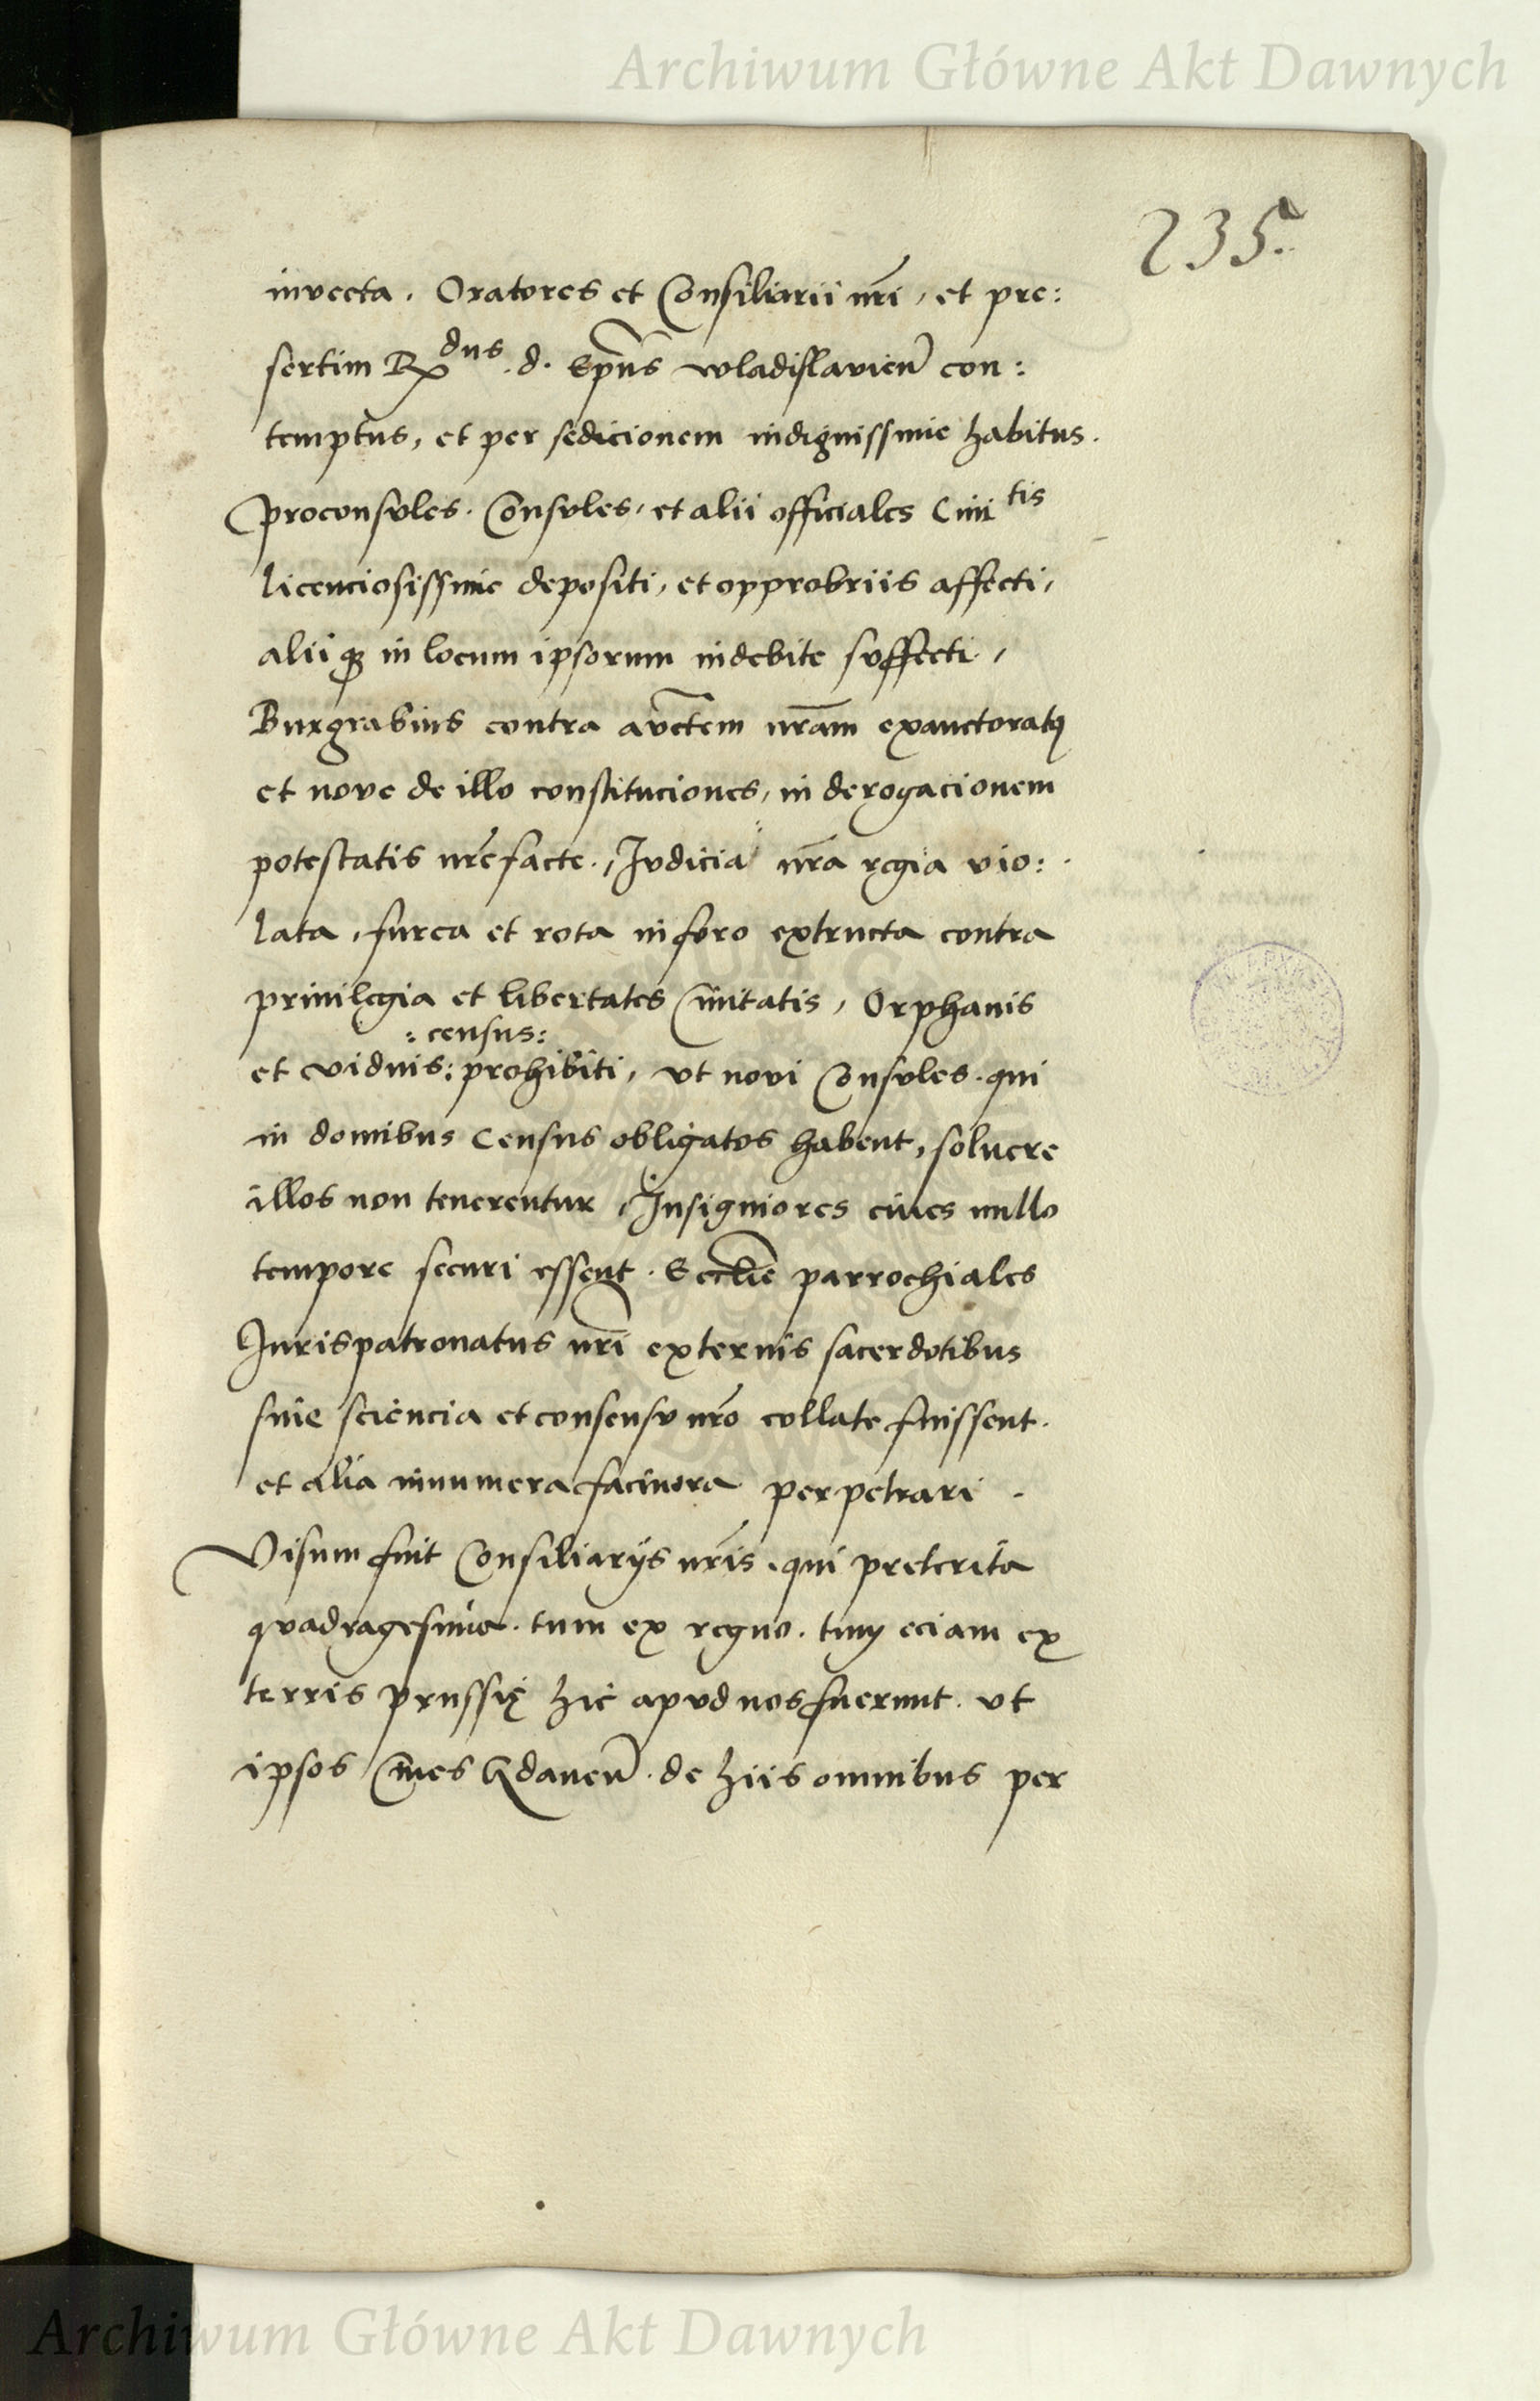 Archiwum Główne Akt Dawnych
235.
invecta. Oratores et Consiliarii nr̄i, et pre:
sertim R^dus. d. Ep̄us wladislavien̄ con:
temptus, et per sedicionem indignissime habitus.
proconsules. Consules, et alii officiales Civi^tis
licenciosissime depositi, et opprobriis affecti,
aliiqȝ in locum ipsorum indebite suffecti,
Burgrabius contra auctem nram exauctoratꝰ
et nove de illo constituciones, in derogacionem
potestatis nr̄e facte. Iudicia nr̄a regia vio:
lata, furca et rota in foro extructa contra
privilegia et libertates Civitatis, Orphanis
: census:
et viduis: prohibiti, ut novi Consules. qui
in domibus Census obligatos habent, solvere
illos non tenerentur, Insigniores cives nullo
tempore securi essent. Ecclie parrochiales
Iurispatronatus nr̄i externis sacerdotibus
sine sciencia et consensu nr̄o collate fuissent.
et alia innumera facinora perpetrari.
Visum fuit Consiliarijs nr̄is. qui preterita
quadragesima. tum ex regno. tum eciam ex
terris prussię hic apud nos fuerunt. ut
ipsos Cives Gdanen̄. de hiis omnibus per
Archiwum Główne Akt Dawnych